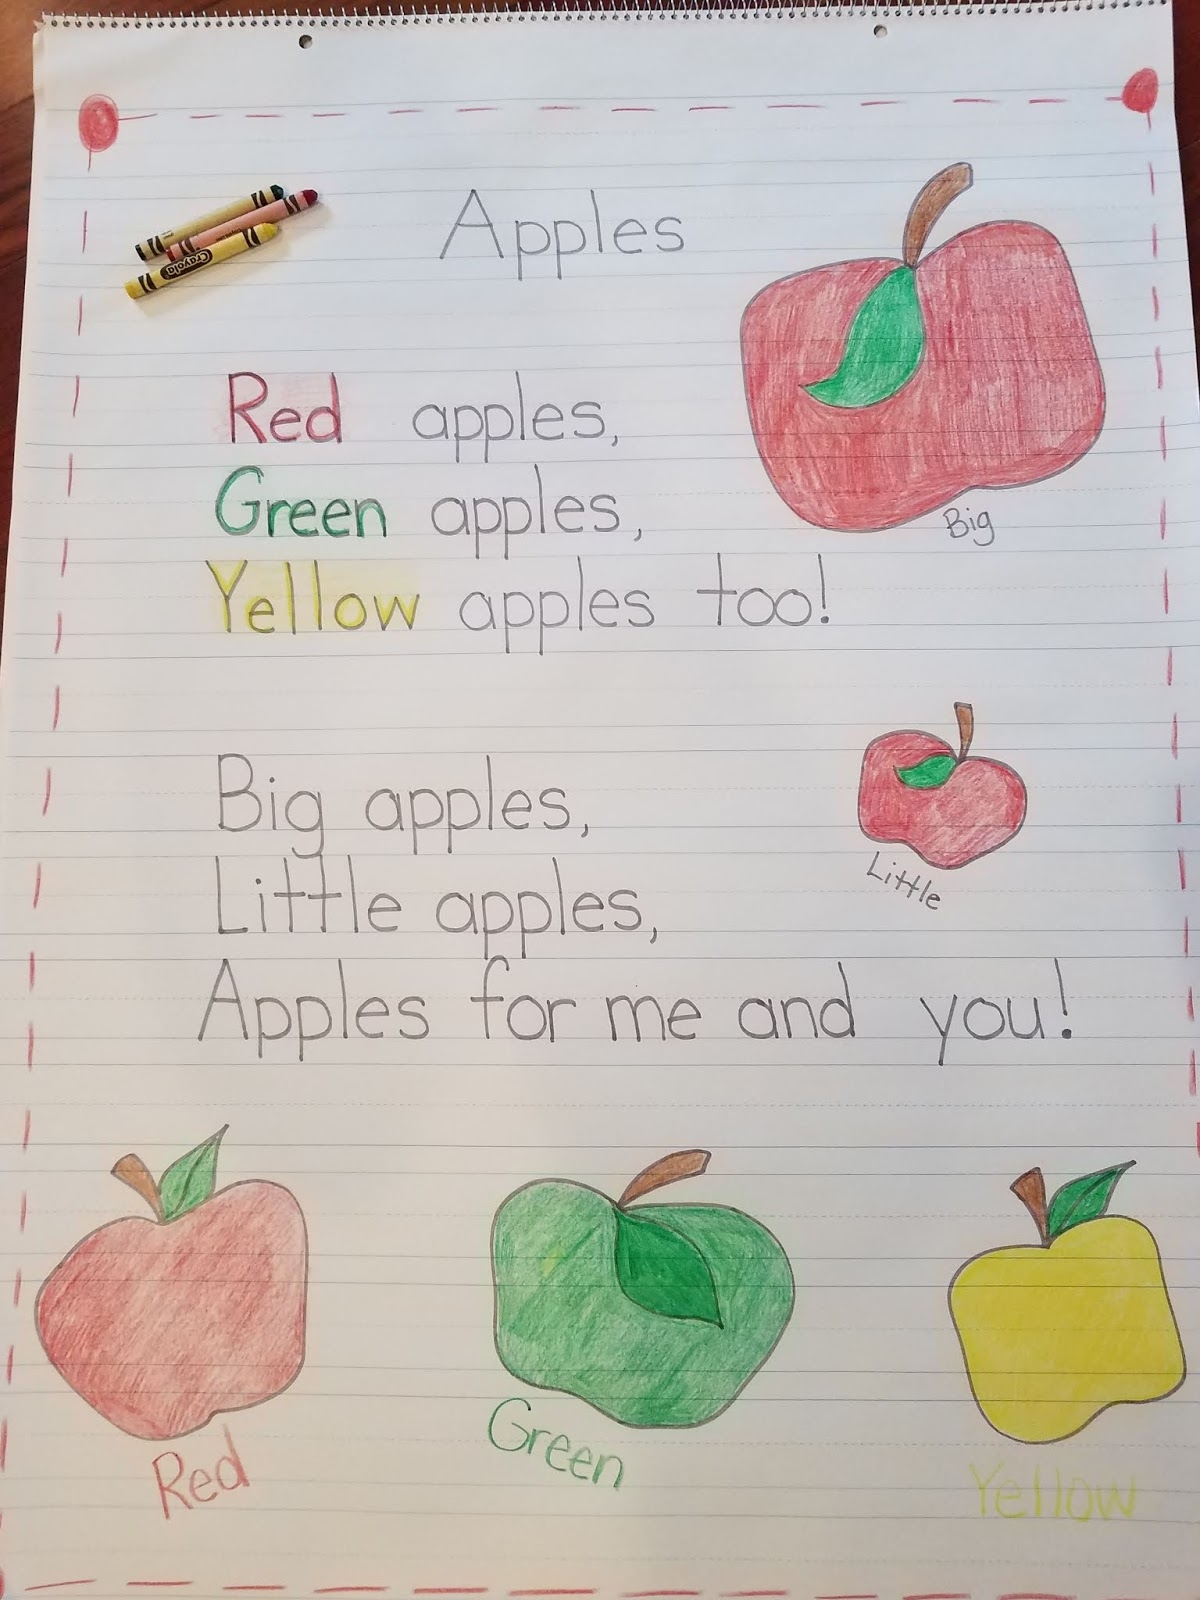 Apples
Crayola
Red apples,
Green apples,
Yellow apples too!
Big
Big apples,
Little apples,
Apples for me and you!
Little
Red
Green
Yellow